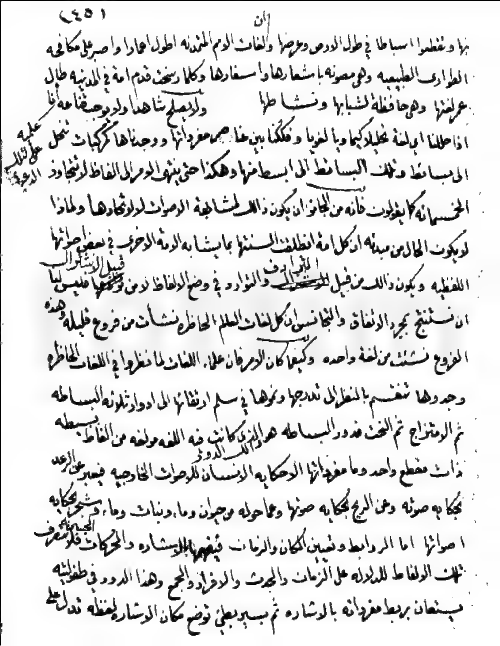 (٤٥)
ان
بها وتقطعوا اسباطا في طول الارض وعرضها ولغات الامم المتمدنه اطول اعمارا واصبر على مكافحه
الطوارئ الطبيعيه وهي مصونه باشعارها واسفارها وكلما رسخت قدم امة في المدنية طال
عمر لغتها وهي حافظة لشبابها ونشاطها ولا يصلح شاهدا ولا يوجب قناعه
اذا حللنا اي لغة تحليلا كيماويا لغويا وفككنا بين عناصر مفرداتها ووجدناها كمركبات تنحل
الى بسائط وتلك البسائط الى ابسط منها وهكذا حتى ينتهي الامر الى الفاظ لا تتجاوز
الخمسمائه كما يقولون فانه من الجائز ان يكون ذالك لمشابهة الاصوات لا لاتحادها ولماذا
لا يكون الحال من مبدئه ان كل امة انطلقت السنتها بما يشابه الامة الاخرى في بعض اصواتها
اللفظيه ويكون ذالك من قبيل التوافق والتوارد في وضع الالفاظ لا من قبيل الاشتراك فليس لنا
ان نستنتج بمجرد الاتفاق والتجانس ان كل لغات العالم الحاضره نشأت من فروع قليله وهذه
الفروع نشئت من لغة واحده وكيفما كان الامر فان علماء اللغات لما نظروا في اللغات الحاضره
وجدوها تنقسم بالنظر الى تدرجها ونموها في سلم ارتقائها الى ادوار ثلاثه البساطه
ثم الامتزاج ثم النحت فدور البساطه هو الدور الذي كانت فيه اللغه مؤلفه من الفاظ بسيطه
ذات مقطع واحد وما مفرداتها الا حكايه الانسان للاصوات الخارجيه فيعبر عن الرعد
بحكايه صوته وعن الريح بحكايه صوتها وعما حوله من حيوان وماء ونبات وماء وشجر بحكايه
اصواتها اما الروابط وتعيين المكان والزمان فيفهمها بالاشاره والحركات
تلك الالفاظ للدلاله على الزمان والحدث والافراد والجمع وهذا الدور في طفوليته
يستعان بربط مفرداته بالاشاره ثم بسير بطئ توضع مكان الاشاره لفظه تدل على